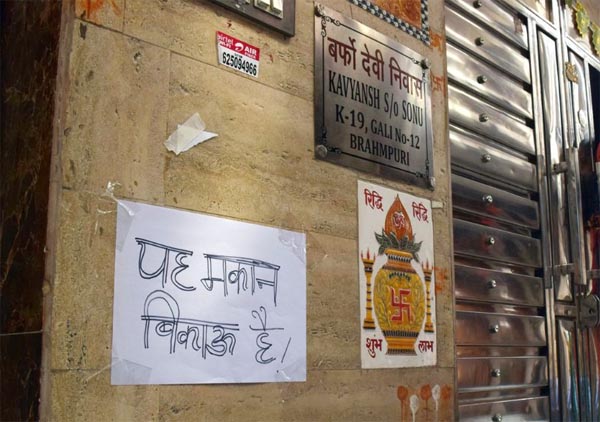 airtel AIR
625094966
बर्फो देवी निवास
KAVYANSH S/o SONU
K-19, GALI No-12
BRAHMPURI
रिद्धि रिद्धि
शुभ लाभ
यह मकान
बिकाऊ है।